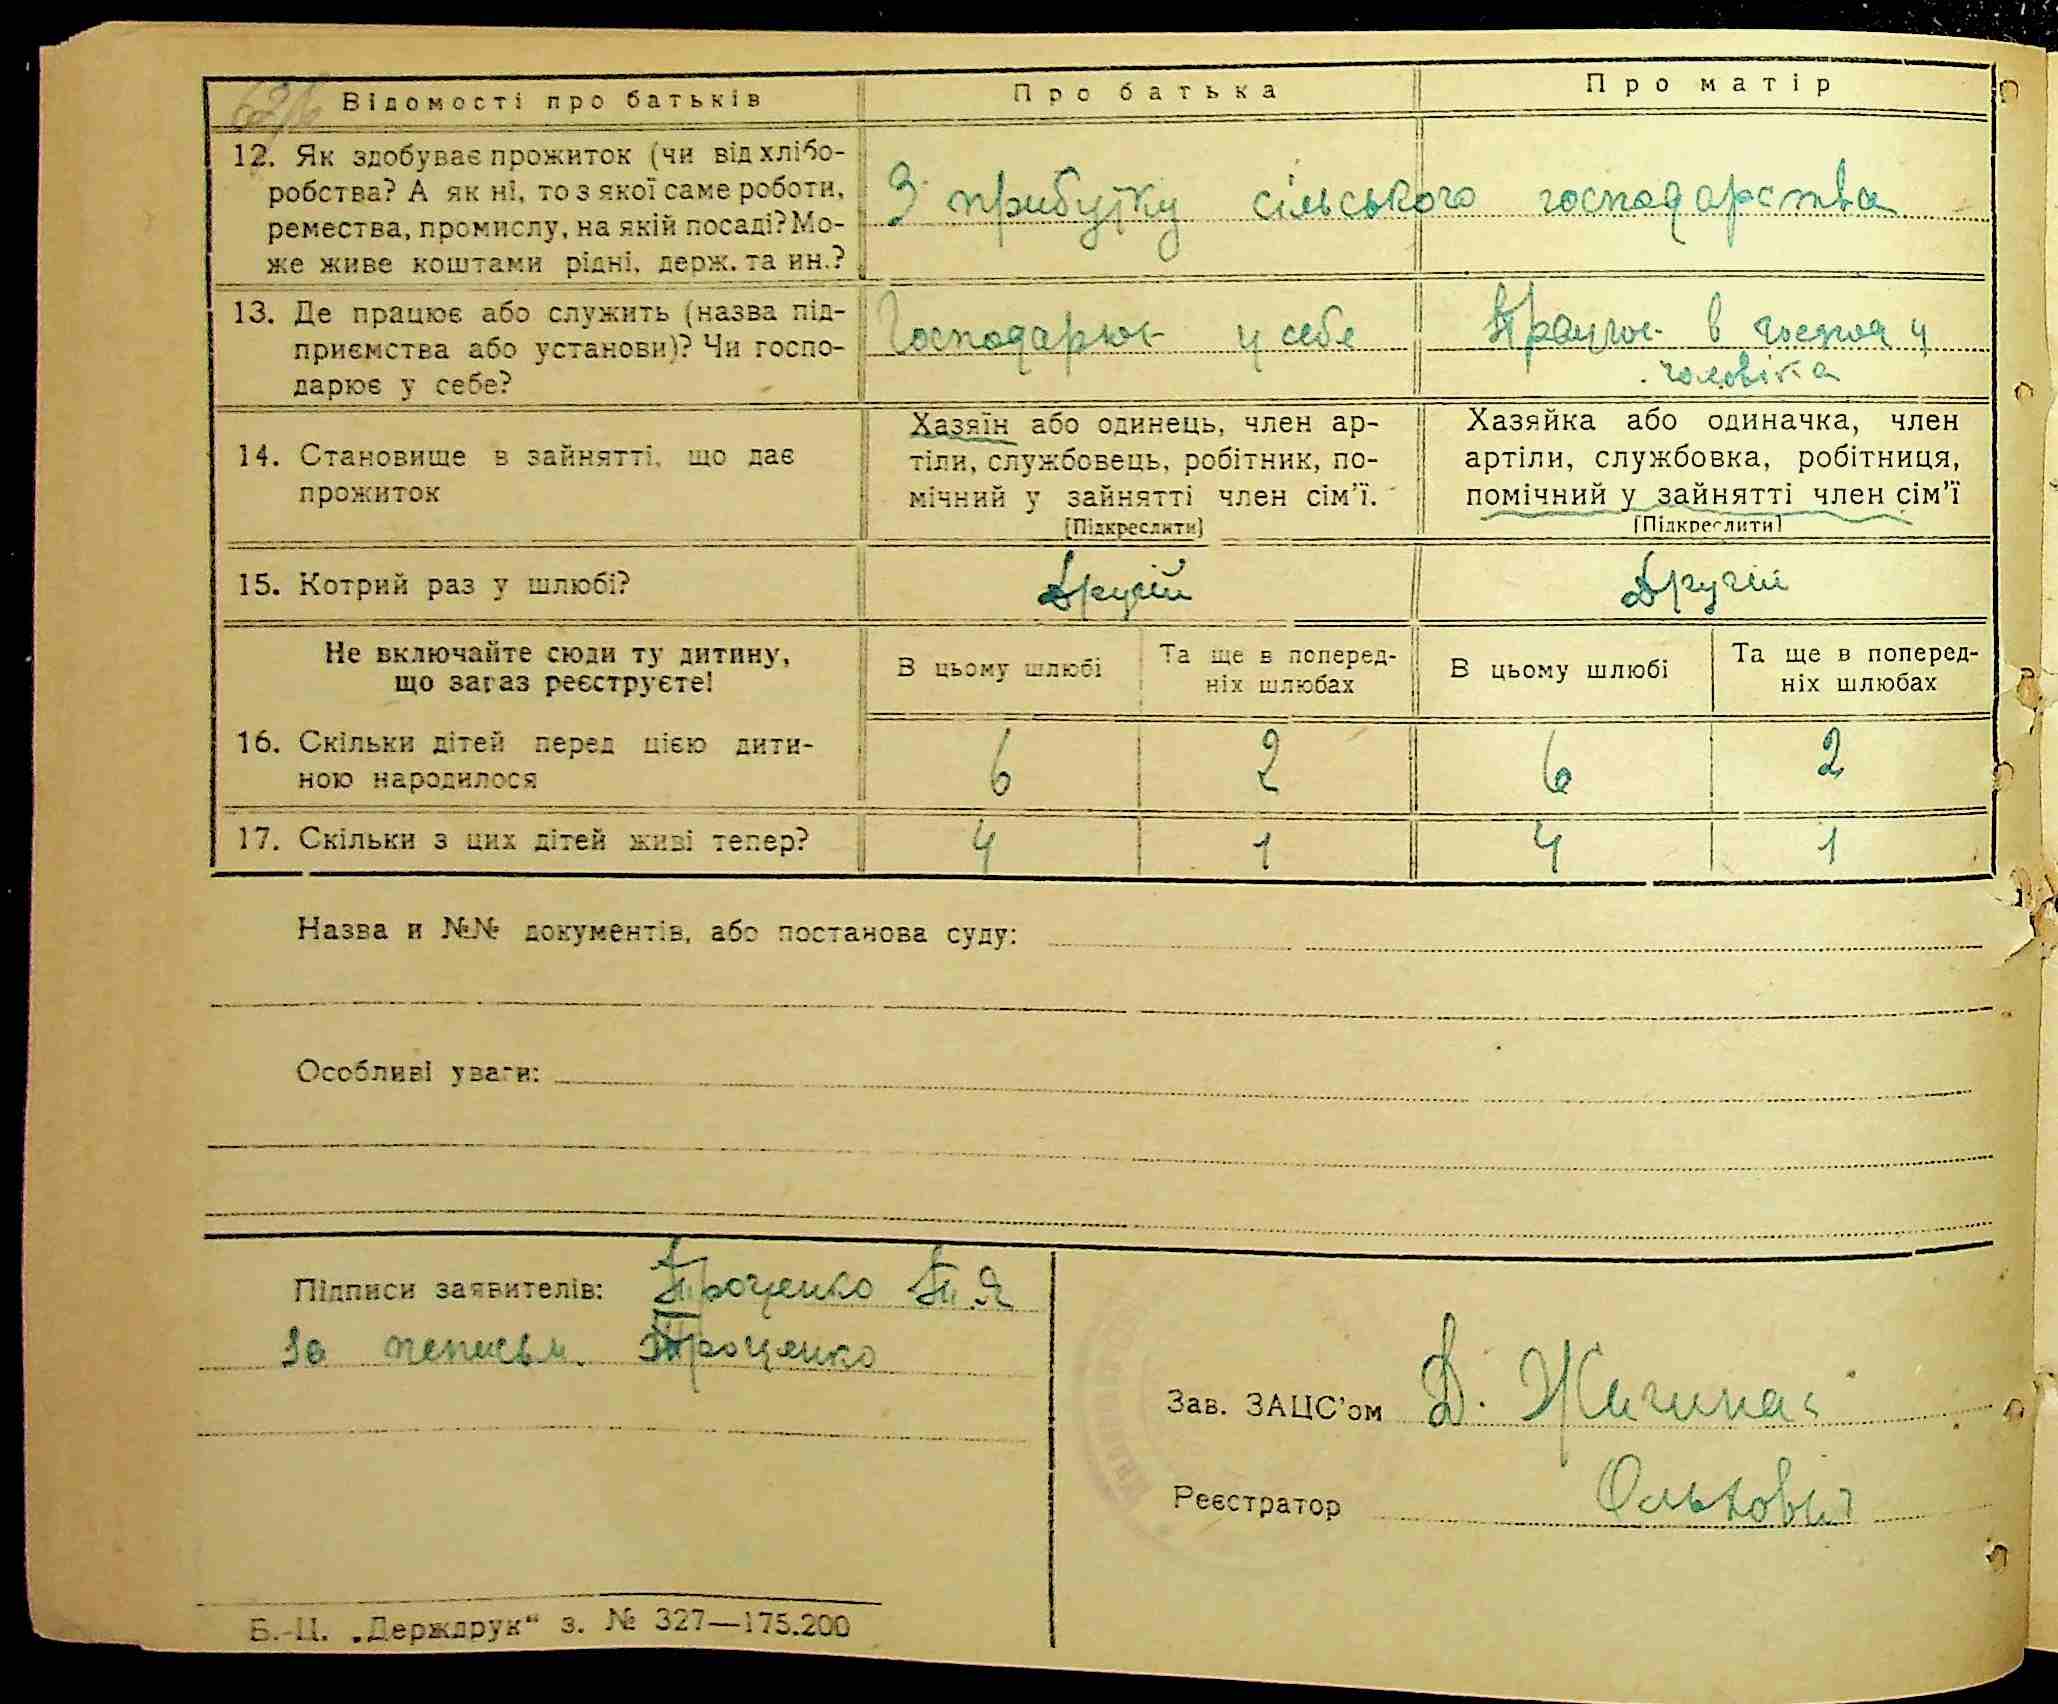 Відомості про батьків Про батька Про матір
12. Як здобуває прожиток (чи від хлібо-
робства? А як ні, то з якої саме роботи,
ремества, промислу, на якій посаді? Мо-
же живе коштами рідні, держ. та ин.?
З прибутку сільського господарства
13. Де працює або служить (назва під-
приємства або установи)? Чи госпо-
дарює у себе?
Господарює у себе
Працює в господ у
чоловіка
14. Становище в зайнятті, що дає
прожиток
Хазяїн або одинець, член ар-
тіли, службовець, робітник, по-
мічний у зайнятті член сім'ї.
[Підкреслити]
Хазяйка або одиначка, член
артіли, службовка, робітниця,
помічний у зайнятті член сім'ї
[Підкреслити]
15. Котрий раз у шлюбі? Другій Другій
Не включайте сюди ту дитину,
що зараз реєструєте!
В цьому шлюбі
Та ще в поперед-
ніх шлюбах
В цьому шлюбі
Та ще в поперед-
ніх шлюбах
16. Скільки дітей перед цією дити-
ною народилося
6 2 6 2
17. Скільки з цих дітей живі тепер? 4 1 4 1
Назва и №№ документів, або постанова суду:
Особливі уваги:
Підписи заявителів: Проценко П. Я
За неписьм. Проценко
Зав. ЗАЦС'ом Д.
Реєстратор
Б.-Ц. „Держдрук“ з. № 327—175.200